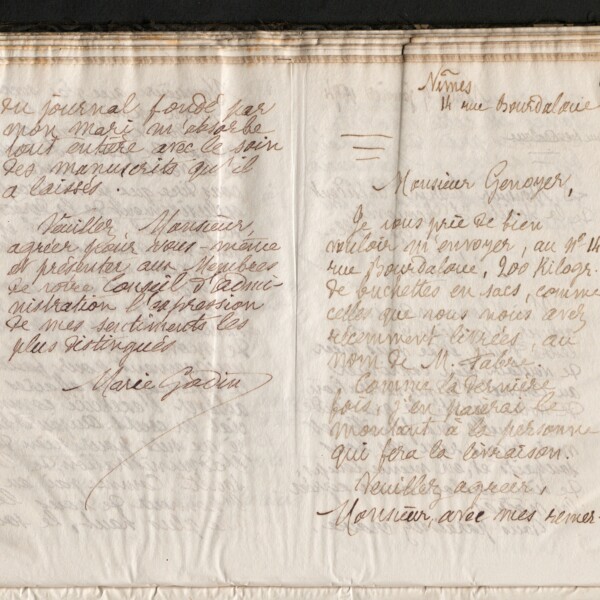 du journal fondé par
mon mari m'absorbe
tout entière avec le soin
des manuscrits qu'il
a laissés.
Veuillez, Monsieur,
agréer pour vous-même
et présenter aux Membres
de votre Conseil d'admi-
nistration l'expression
de mes sentiments les
plus distingués
Marie Godin
Nîmes
14 rue Bourdaloue
Monsieur Genoyer,
Je vous prie de bien
vouloir m'envoyer, au Nº 14
rue Bourdaloue, 200 Kilogr.
de buchettes en sacs, comme
celles que vous nous avez
récemment livrées, au
nom de M. Fabre.
Comme la dernière
fois, j'en paierai le
montant à la personne
qui fera la livraison.
Veuillez agréer,
Monsieur, avec mes remer-